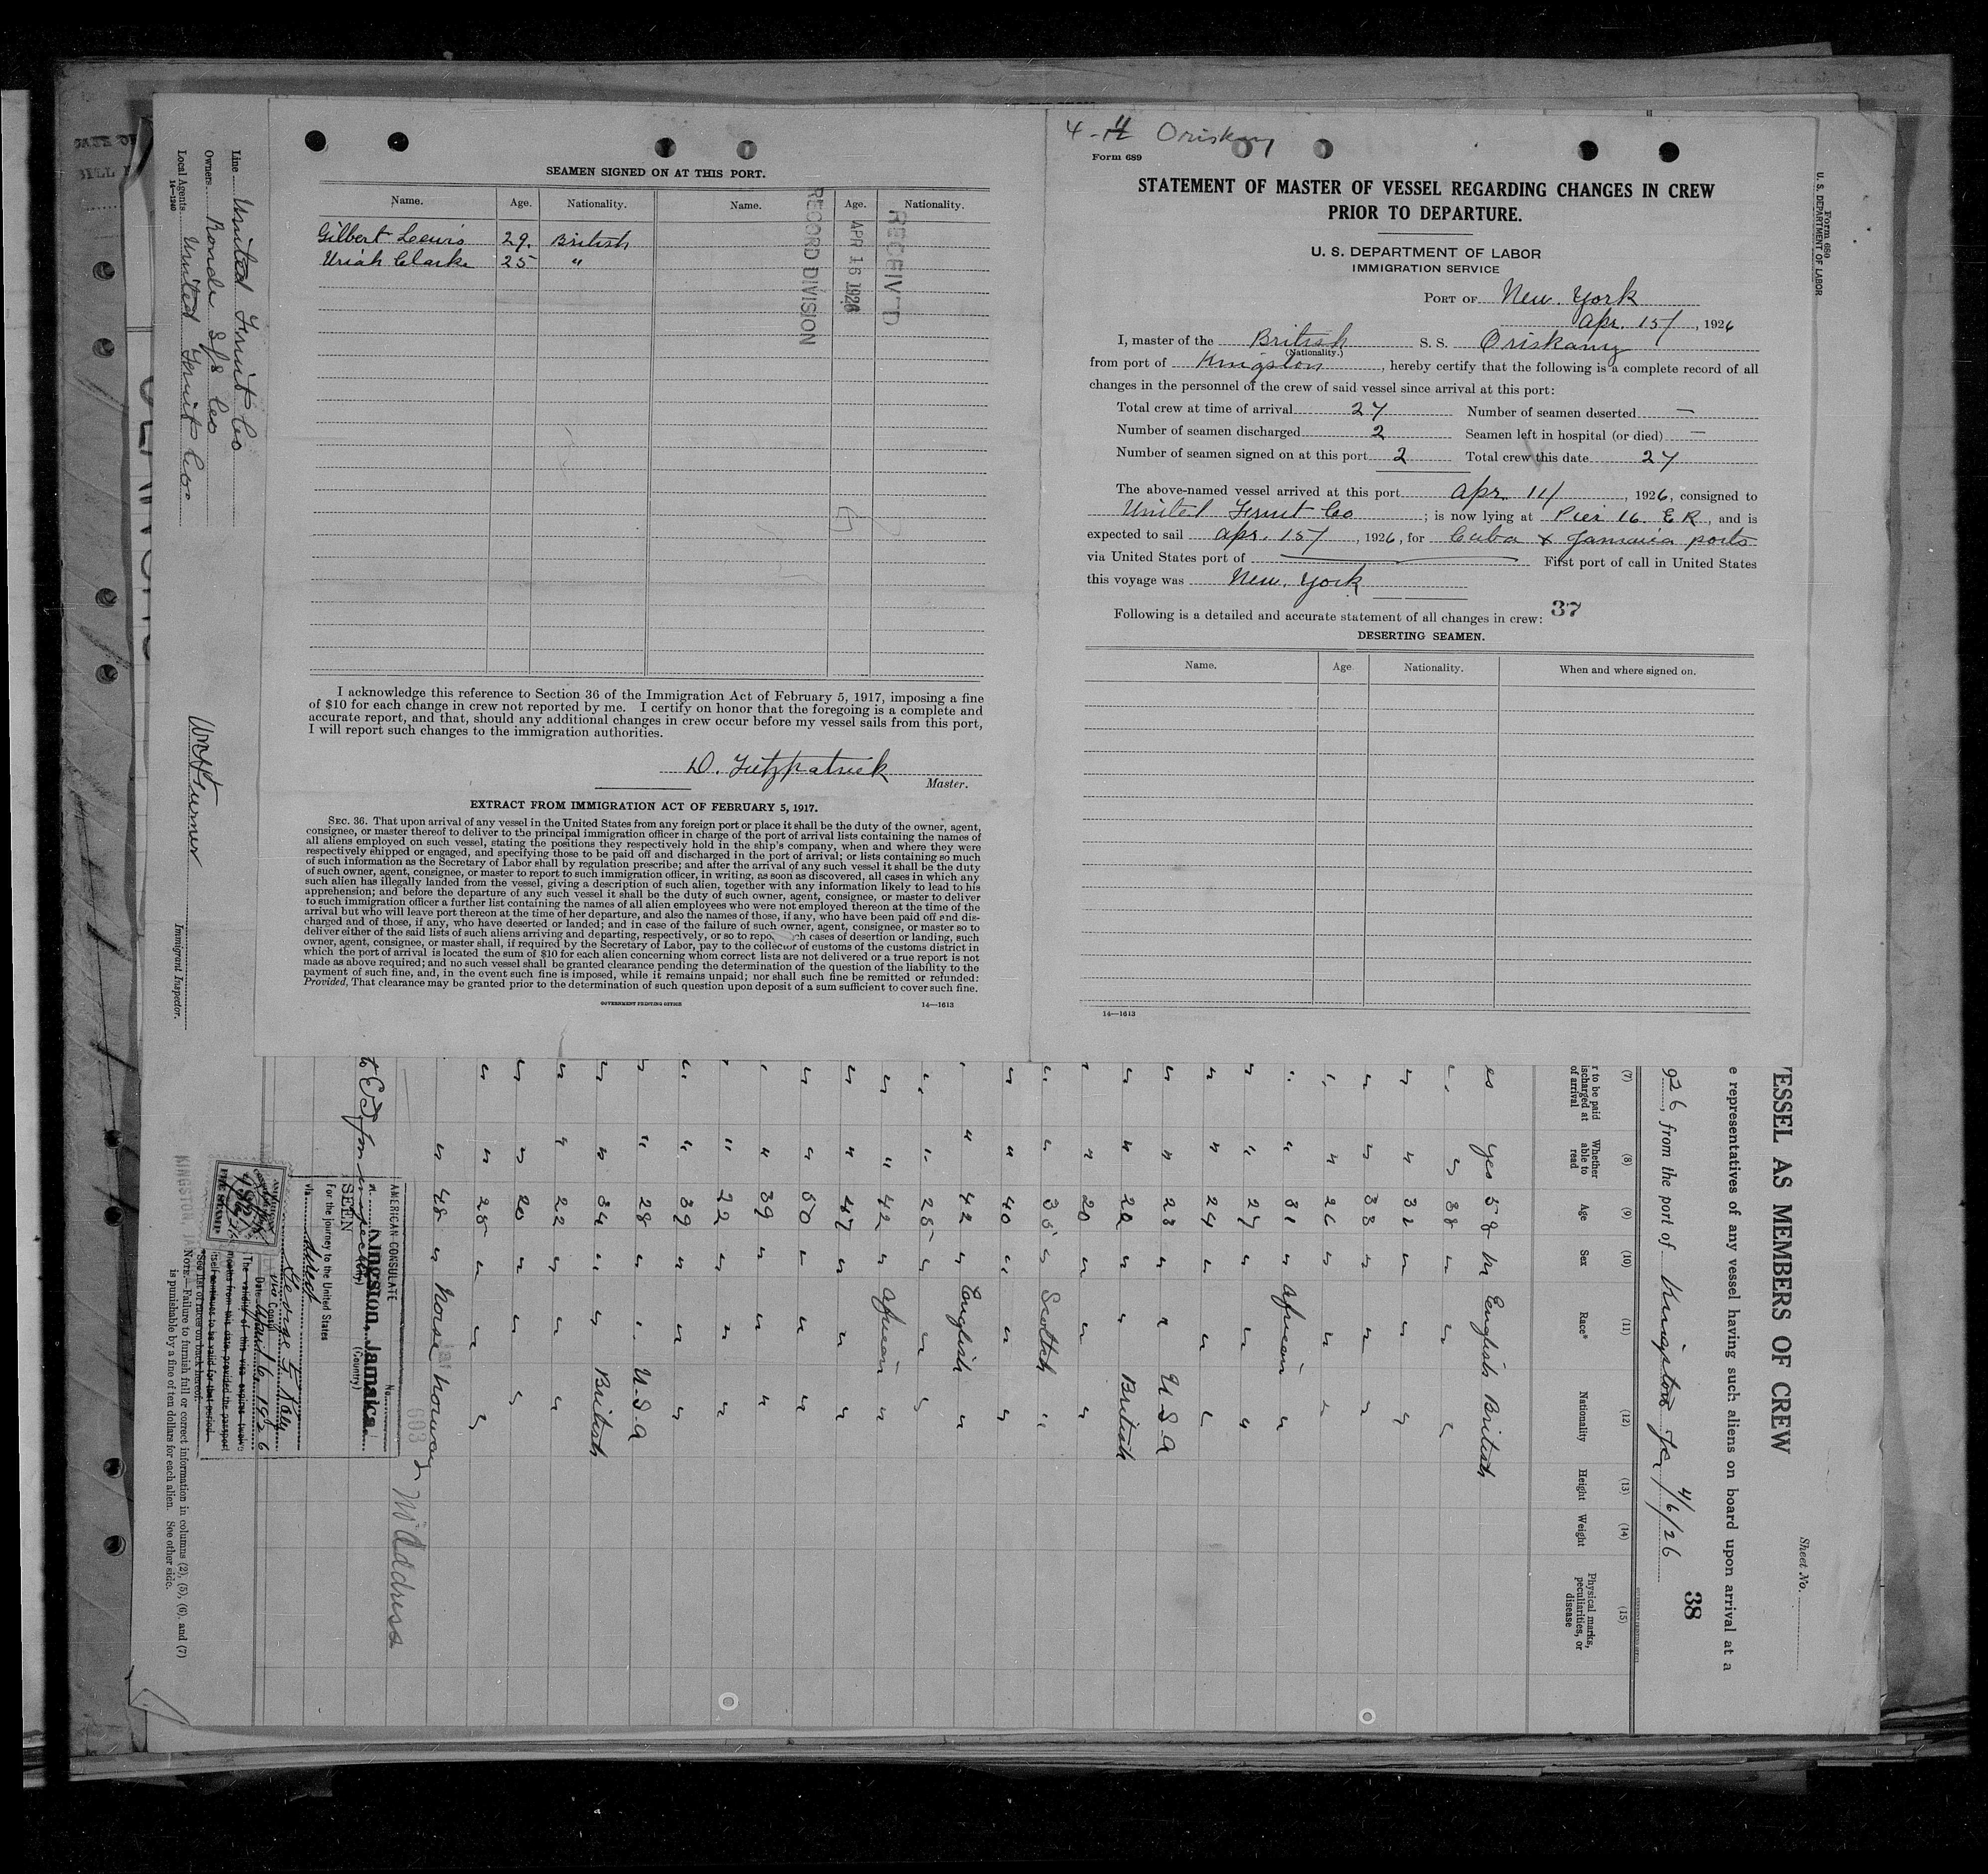 SEAMEN SIGNED ON AT THIS PORT.
Name. Age. Nationality. Name. Age. Nationality.
Gilbert Lewis 29. British
Uriah Clarke 25 "
RECEIV'D
APR 16 1926
RECORD DIVISION
I acknowledge this reference to Section 36 of the Immigration Act of February 5, 1917, imposing a fine
of $10 for each change in crew not reported by me. I certify on honor that the foregoing is a complete and
accurate report, and that, should any additional changes in crew occur before my vessel sails from this port,
I will report such changes to the immigration authorities.
D. Fitzpatrick
Master.
EXTRACT FROM IMMIGRATION ACT OF FEBRUARY 5, 1917.
SEC. 36. That upon arrival of any vessel in the United States from any foreign port or place it shall be the duty of the owner, agent,
consignee, or master thereof to deliver to the principal immigration officer in charge of the port of arrival lists containing the names of
all aliens employed on such vessel, stating the positions they respectively hold in the ship's company, when and where they were
respectively shipped or engaged, and specifying those to be paid off and discharged in the port of arrival; or lists containing so much
of such information as the Secretary of Labor shall by regulation prescribe; and after the arrival of any such vessel it shall be the duty
of such owner, agent, consignee, or master to report to such immigration officer, in writing, as soon as discovered, all cases in which any
such alien has illegally landed from the vessel, giving a description of such alien, together with any information likely to lead to his
apprehension; and before the departure of any such vessel it shall be the duty of such owner, agent, consignee, or master to deliver
to such immigration officer a further list containing the names of all alien employees who were not employed thereon at the time of the
arrival but who will leave port thereon at the time of her departure, and also the names of those, if any, who have been paid off and dis-
charged and of those, if any, who have deserted or landed; and in case of the failure of such owner, agent, consignee, or master so to
deliver either of the said lists of such aliens arriving and departing, respectively, or so to repo ch cases of desertion or landing, such
owner, agent, consignee, or master shall, if required by the Secretary of Labor, pay to the collector of customs of the customs district in
which the port of arrival is located the sum of $10 for each alien concerning whom correct lists are not delivered or a true report is not
made as above required; and no such vessel shall be granted clearance pending the determination of the question of the liability to the
payment of such fine, and, in the event such fine is imposed, while it remains unpaid; nor shall such fine be remitted or refunded:
Provided, That clearance may be granted prior to the determination of such question upon deposit of a sum sufficient to cover such fine.
GOVERNMENT PRINTING OFFICE 14—1613
4-11 Oriskany
Form 689
STATEMENT OF MASTER OF VESSEL REGARDING CHANGES IN CREW
PRIOR TO DEPARTURE.
U. S. DEPARTMENT OF LABOR
IMMIGRATION SERVICE
PORT OF New York
Apr. 15/, 1926
I, master of the British S. S. Oriskany
(Nationality.)
from port of Kingston, hereby certify that the following is a complete record of all
changes in the personnel of the crew of said vessel since arrival at this port:
Total crew at time of arrival 27 Number of seamen deserted —
Number of seamen discharged 2 Seamen left in hospital (or died) —
Number of seamen signed on at this port 2 Total crew this date 27
The above-named vessel arrived at this port Apr 11/, 1926, consigned to
United Fruit Co; is now lying at Pier 16. E R, and is
expected to sail Apr. 15/, 1926, for Cuba & Jamaica ports
via United States port of —— First port of call in United States
this voyage was New York
Following is a detailed and accurate statement of all changes in crew: 37
DESERTING SEAMEN.
Name. Age. Nationality. When and where signed on.
14—1613
Form 689
U. S. DEPARTMENT OF LABOR
Line United Fruit Co
Owners
Local Agents United Fruit Co
14—1240
Immigrant Inspector.
Sheet No.
ESSEL AS MEMBERS OF CREW
e representatives of any vessel having such aliens on board upon arrival at a
38
926, from the port of Kingston Ja, 4/6/26
(7) (8) (9) (10) (11) (12) (13) (14) (15)
r to be paid discharged at of arrival Whether able to read Age Sex Race* Nationality Height Weight Physical marks, peculiarities, or disease
es yes 58 M English British
" " 38 " " "
" " 32 " " "
" " 33 " " "
" " 26 " " "
" " 31 " African "
" " 27 " " "
" " 24 " " "
" " 23 " " U.S.A
" " 22 " " British
" " 20 " " "
" " 35 " Scottish "
" " 40 " " "
" " 42 " English "
" " 25 " " "
" " 42 " African "
" " 47 " " "
" " 50 " " "
" " 39 " " "
" " 22 " " "
" " 39 " " "
" " 28 " " U.S.A
" " 34 " " British
" " 22 " " "
" " 20 " " "
" " 25 " " "
" " 48 " Norse Norway
AMERICAN CONSULATE
No. 603
Kingston, Jamaica
(City) (Country)
SEEN
For the journey to the United States
via direct
Vice Consul
Date April 6, 1926
The validity of this visa expires twelve
*See list of races on back hereof.
NOTE.—Failure to furnish full or correct information in columns (2), (5), (6), and (7)
is punishable by a fine of ten dollars for each alien. See other side.